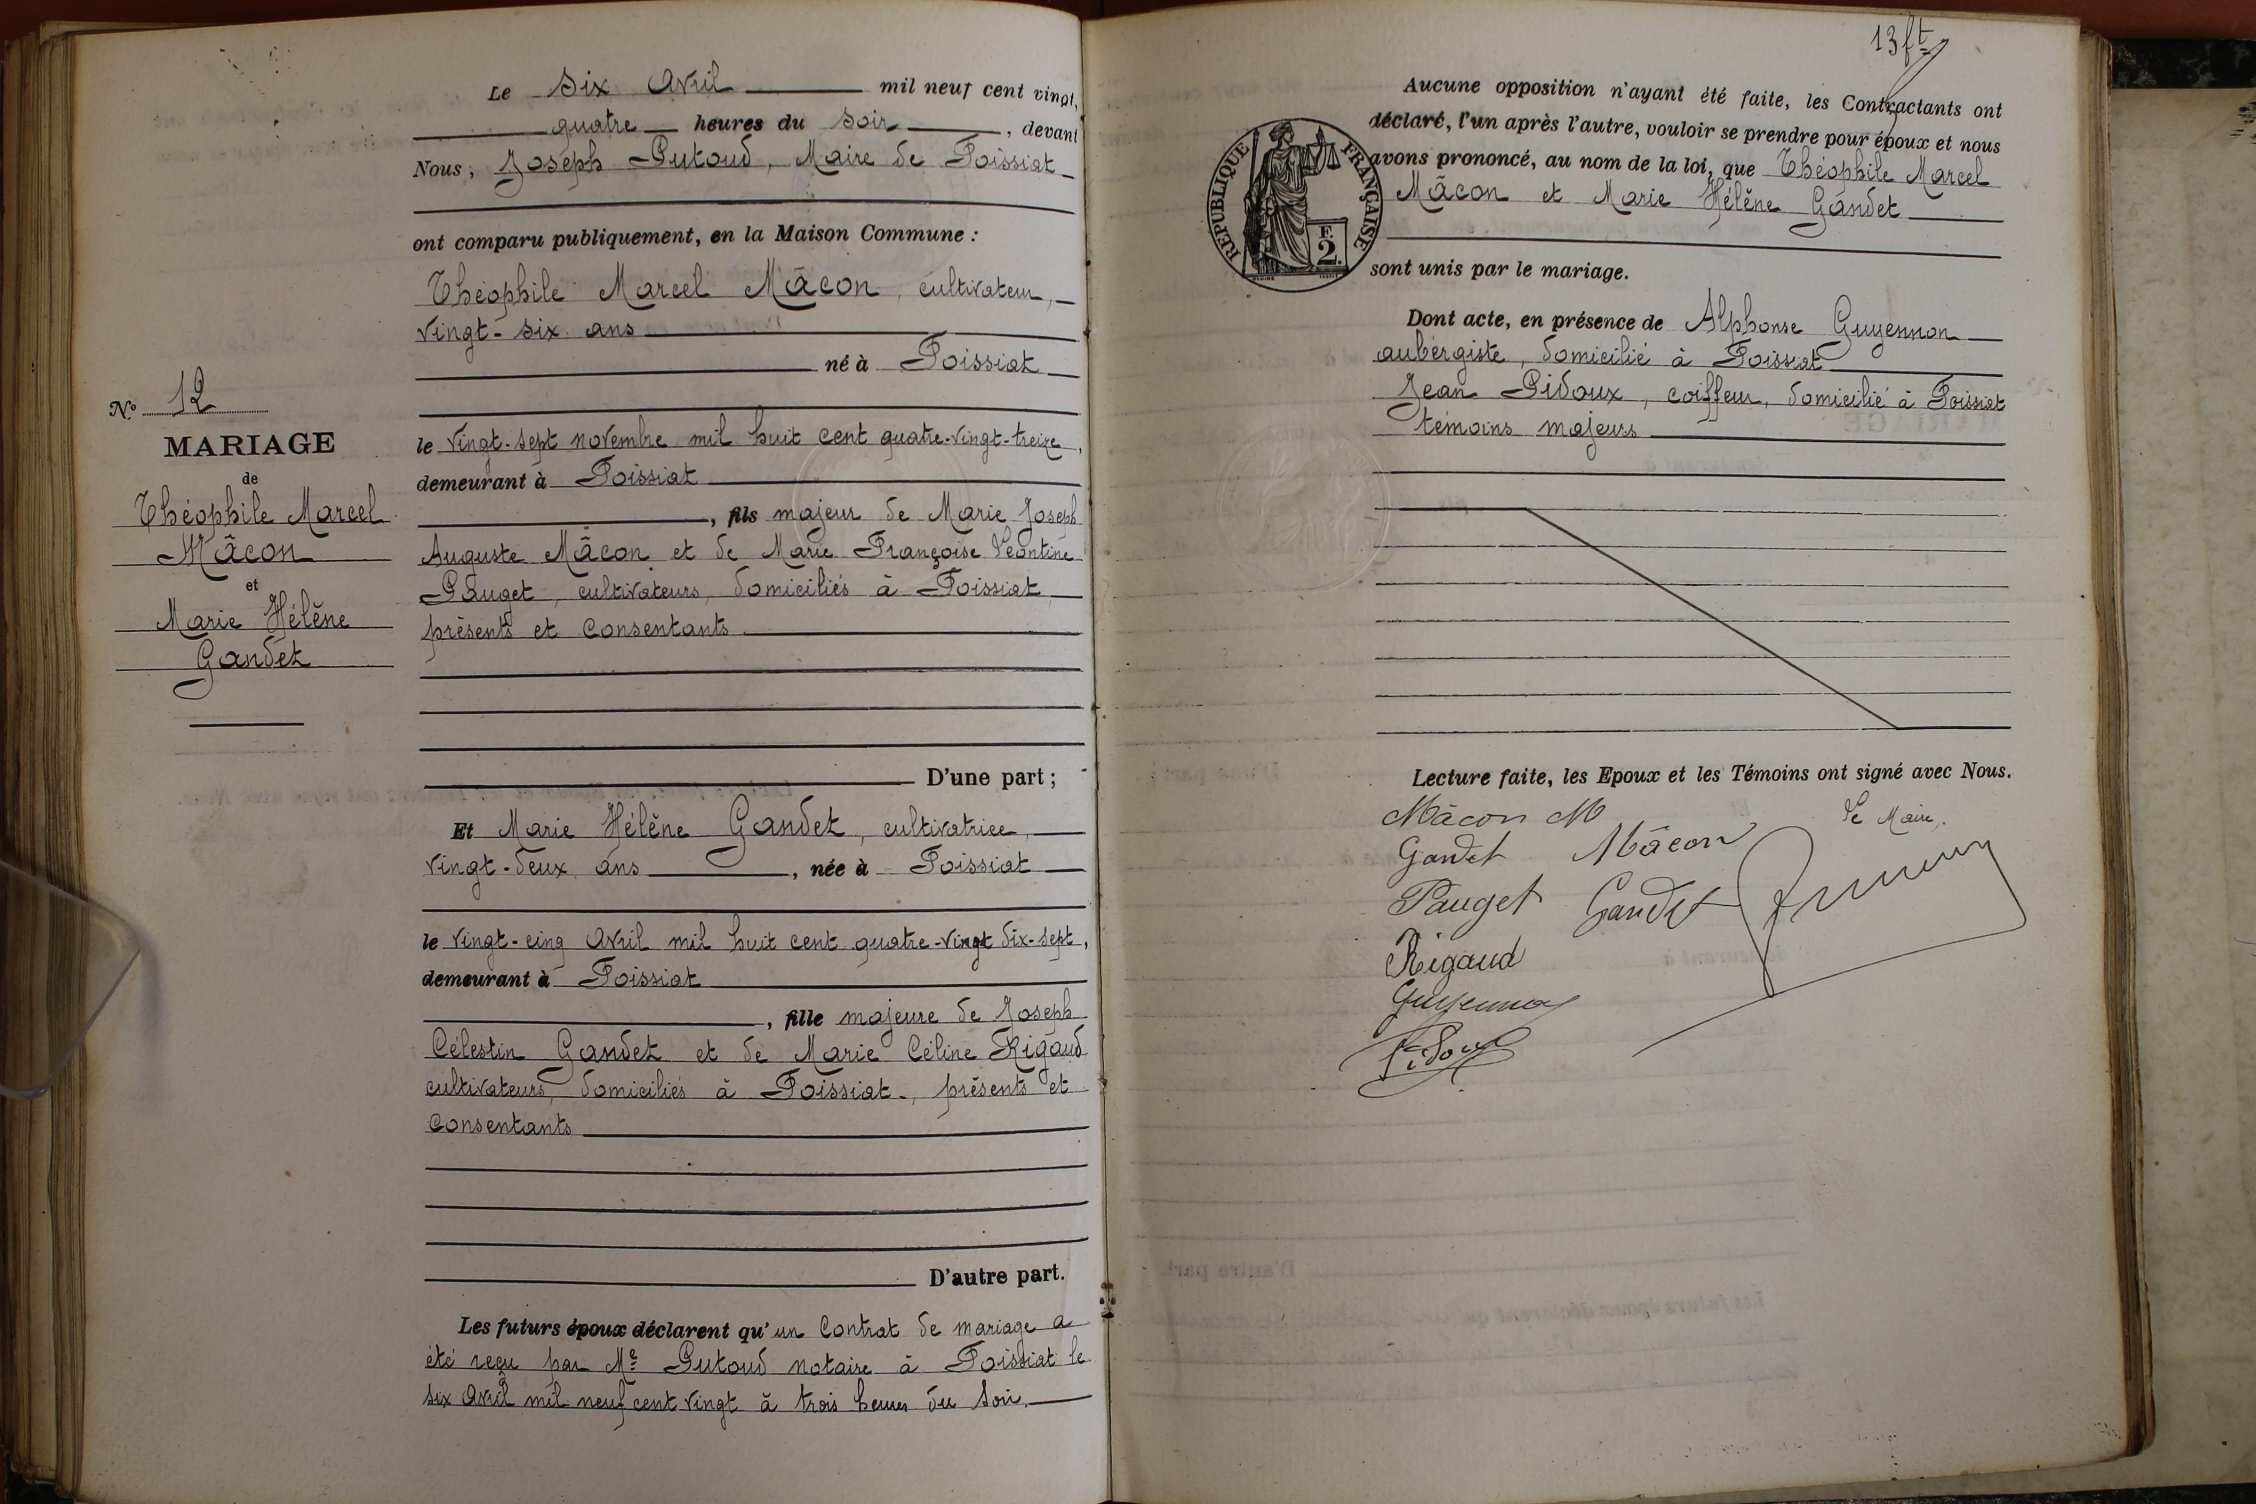 N° 12
MARIAGE
de
Théophile Marcel
Mâcon
et
Marie Hélène
Gandet
Le six Avril mil neuf cent vingt,
quatre heures du soir, devant
Nous, Joseph Putoud, Maire de Foissiat
ont comparu publiquement, en la Maison Commune :
Théophile Marcel Mâcon, cultivateur,
vingt-six ans
né à Foissiat
le vingt-sept novembre mil huit cent quatre-vingt-treize,
demeurant à Foissiat
, fils majeur de Marie Joseph
Auguste Mâcon et de Marie Françoise Léontine
Pauget, cultivateurs, domiciliés à Foissiat
présents et consentants
D'une part ;
Et Marie Hélène Gandet, cultivatrice,
vingt-deux ans, née à Foissiat
le vingt-cinq Avril mil huit cent quatre-vingt dix-sept,
demeurant à Foissiat
, fille majeure de Joseph
Célestin Gandet et de Marie Céline Rigaud
cultivateurs, domiciliés à Foissiat, présents et
consentants
D'autre part.
Les futurs époux déclarent qu'un Contrat de mariage a
été reçu par Me Putoud notaire à Foissiat le
six Avril mil neuf cent vingt à trois heures du soir.
13 ft
REPUBLIQUE FRANÇAISE
F.
2.
Aucune opposition n'ayant été faite, les Contractants ont
déclaré, l'un après l'autre, vouloir se prendre pour époux et nous
avons prononcé, au nom de la loi, que Théophile Marcel
Mâcon et Marie Hélène Gandet
sont unis par le mariage.
Dont acte, en présence de Alphonse Guyennon
aubergiste, domicilié à Foissiat
Jean Pidoux, coiffeur, domicilié à Foissiat
témoins majeurs
Lecture faite, les Epoux et les Témoins ont signé avec Nous.
Mâcon M
Le Maire,
Gandet Mâcon
Pauget Gandet
Rigaud
Guyennon
Pidoux